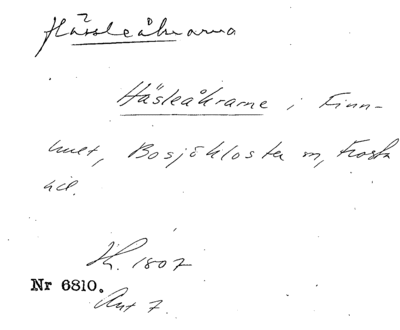 Hässleåkrarna
Häsleåkrarne i Finn-
hult, Bosjökloster m, Frosta
hd.
H. 1807
Nr 6810.
Akt 7.